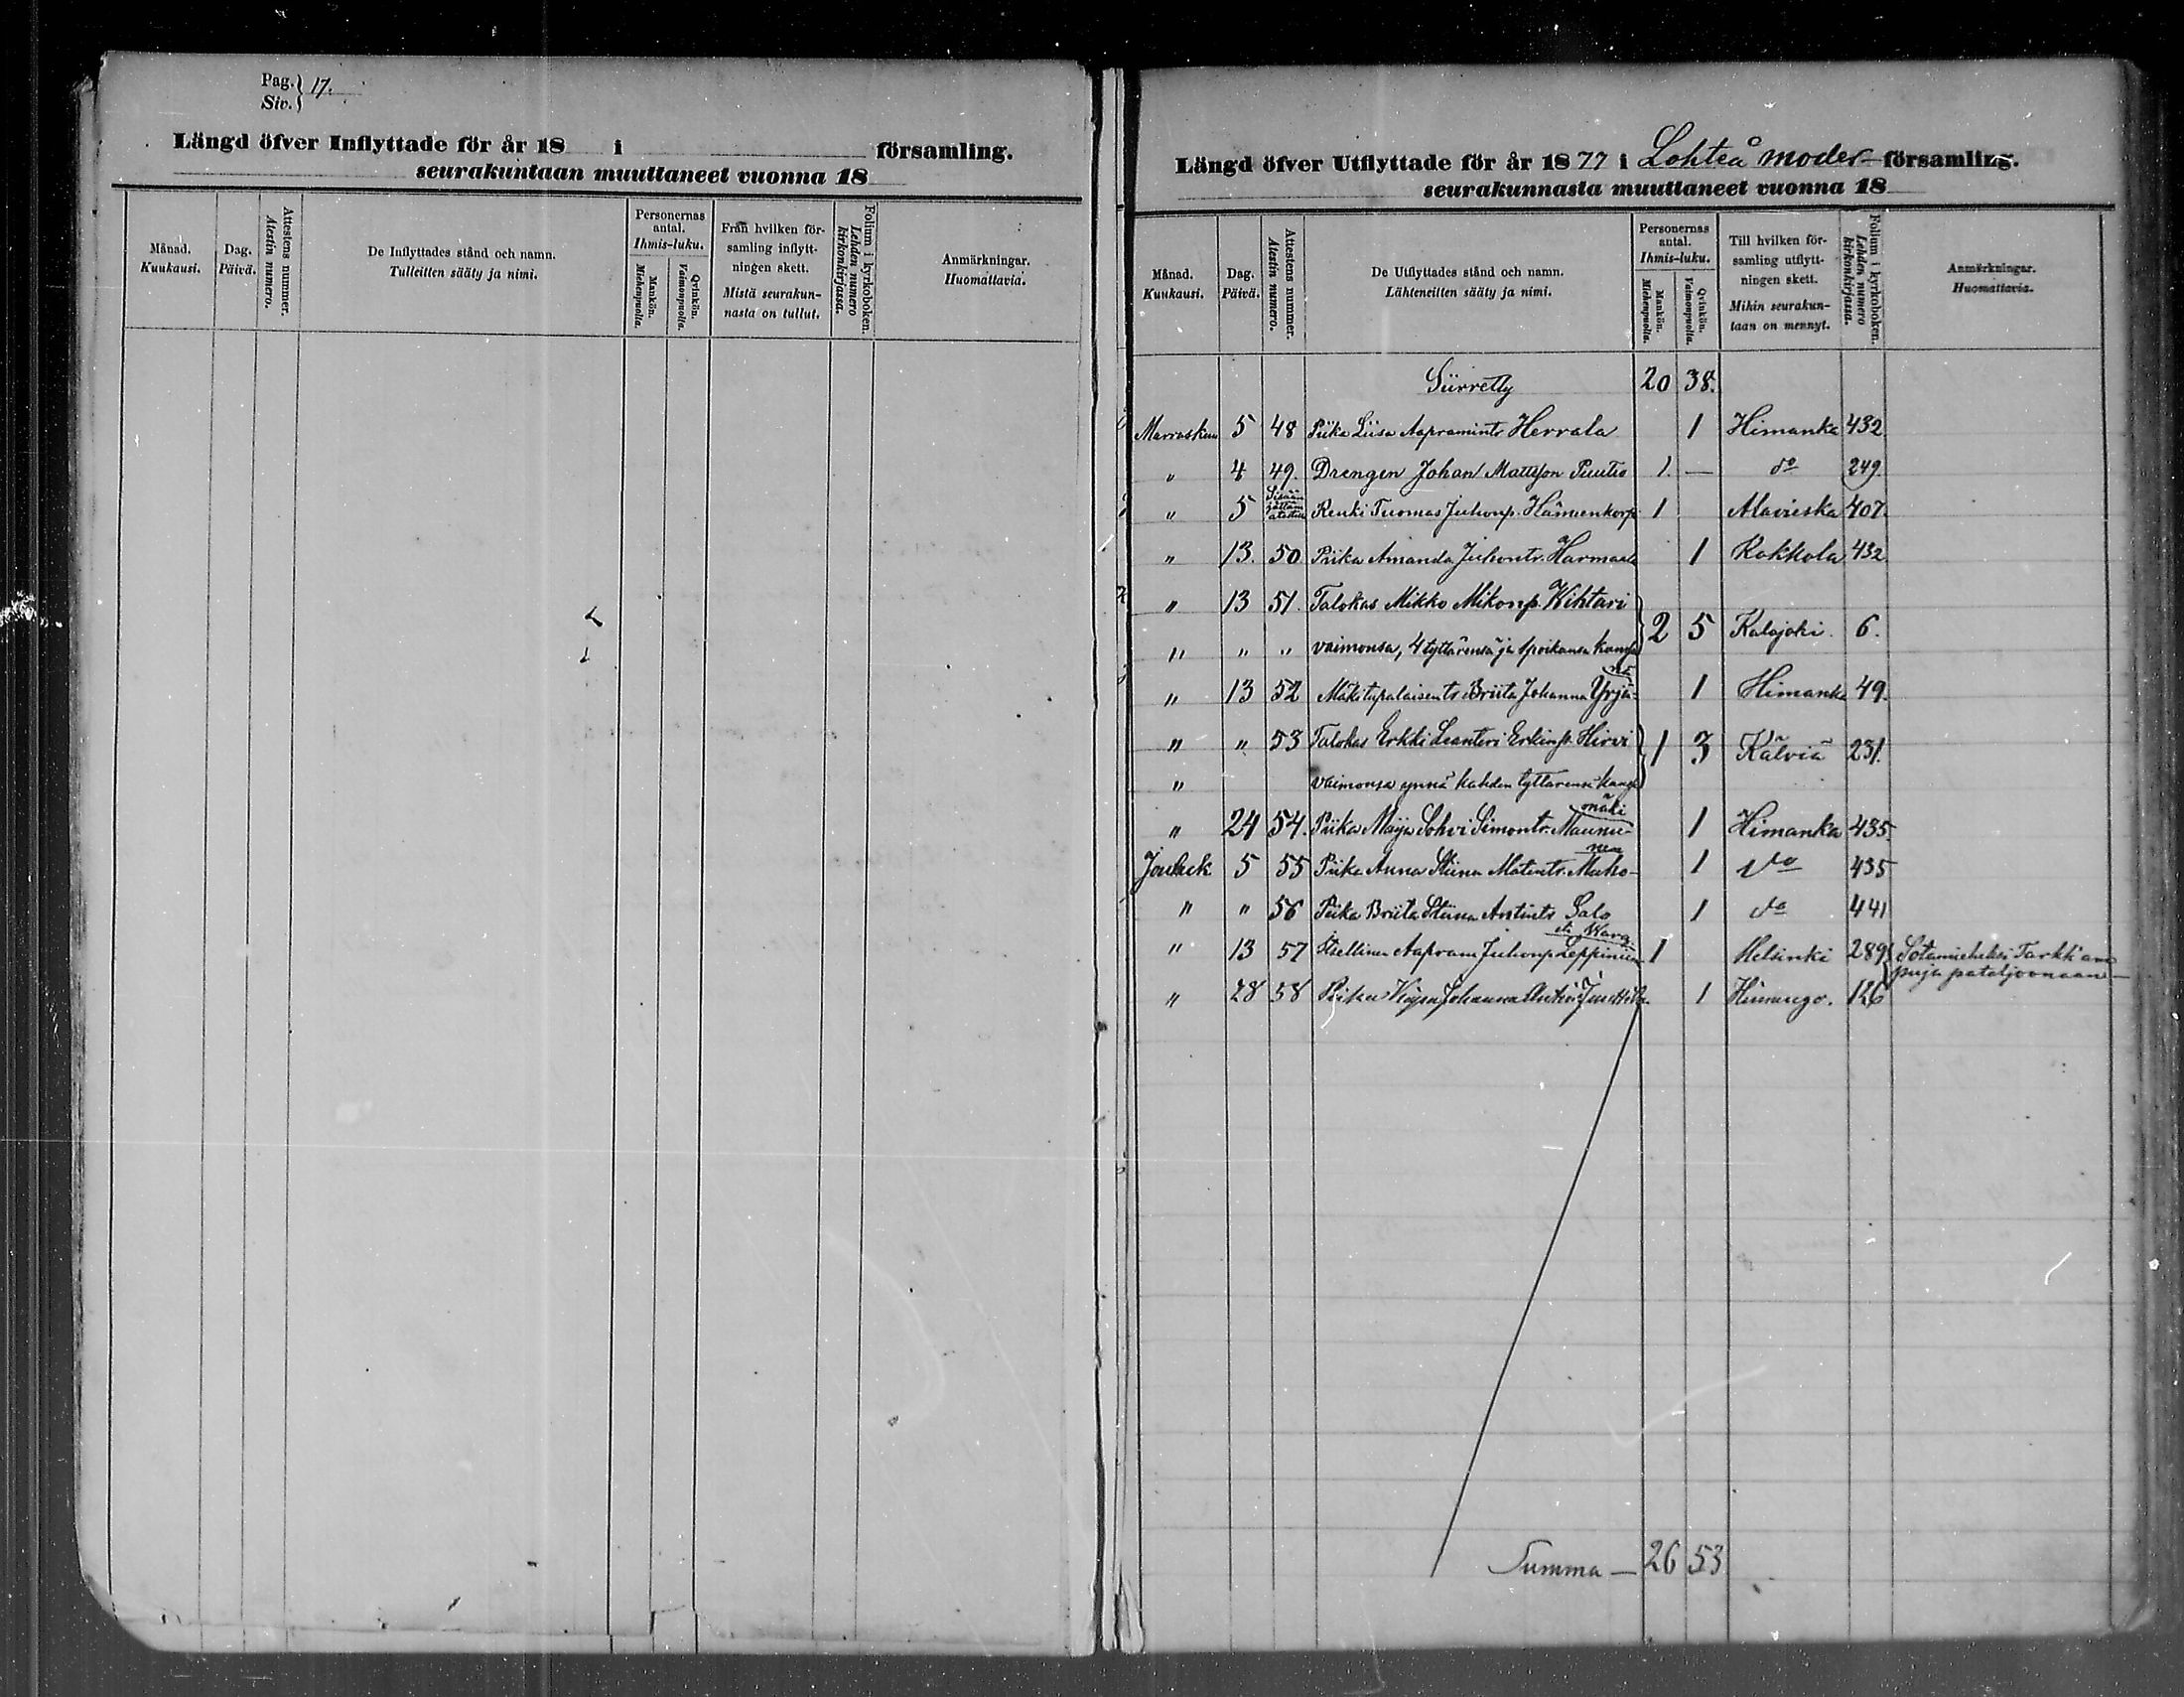 Pag. } 17.
Siv. }
Längd öfver Inflyttade för år 18 i församling.
seurakuntaan muuttaneet vuonna 18
Månad. Kuukausi.
Dag. Päivä.
Attestens nummer. Atestin numero.
De Inflyttades stånd och namn. Tulleitten sääty ja nimi.
Personernas antal. Ihmis-luku.
Mankön. Miehenpuolta.
Qvinkön. Vaimonpuolta.
Från hvilken församling inflyttningen skett. Mistä seurakunnasta on tullut.
Folium i kyrkoboken. Lehden numero kirkonkirjassa.
Anmärkningar. Huomattavia.
Längd öfver Utflyttade för år 1877 i Lohteå moder-församling.
seurakunnasta muuttaneet vuonna 18
Månad. Kuukausi.
Dag. Päivä.
Attestens nummer. Atestin numero.
De Utflyttades stånd och namn. Lähteneitten sääty ja nimi.
Personernas antal. Ihmis-luku.
Mankön. Miehenpuolta.
Qvinkön. Vaimonpuolta.
Till hvilken församling utflyttningen skett. Mihin seurakuntaan on mennyt.
Folium i kyrkoboken. Lehden numero kirkonkirjassa.
Anmärkningar. Huomattavia.
Siirretty 20 38.
Marraskuu 5 48 Piika Liisa Aapramintr Herrala 1 Himanka 432
" 4 49. Drengen Johan Mattsson Puutio 1. — do 249.
" 5 Renki Tuomas Juhonp. Hämeenkorpi 1 Alavieska 407.
" 13. 50 Piika Amanda Juhontr. Harmaala 1 Kokkola 432
" 13 51. Talokas Mikko Mikonp. Wihtari
" " " vaimonsa, 4 tyttärensä ja 1 poikansa kanssa 2 5 Kalajoki. 6.
" 13 52 Mäkitupalaisen ts Briita Johanna Yrjänä 1 Himanka 49.
" " 53 Talokas Erkki Leanteri Erkinp. Hirvi 1 3 Kälviä 231.
" vaimonsa ynnä kahden tyttärensä kanssa
" 24 54. Piika Maija Sohvi Simontr. Maunumäki 1 Himanka 435.
Jouluk 5 55 Piika Anna Stiina Matintr. Muhonen 1 do 435
" " 56 Piika Briita Stiina Antintr Salo 1 do 441
" 13 57 Itsellinen Aapram Juhonp Leppinen eli Warg 1 Helsinki 289 Sotamieheksi Tarkk'am
puja pataljoonaan
" 28 58 Piikan Kaisa Johanna Antintr Junttila 1 Himango. 126
Summa — 26 53